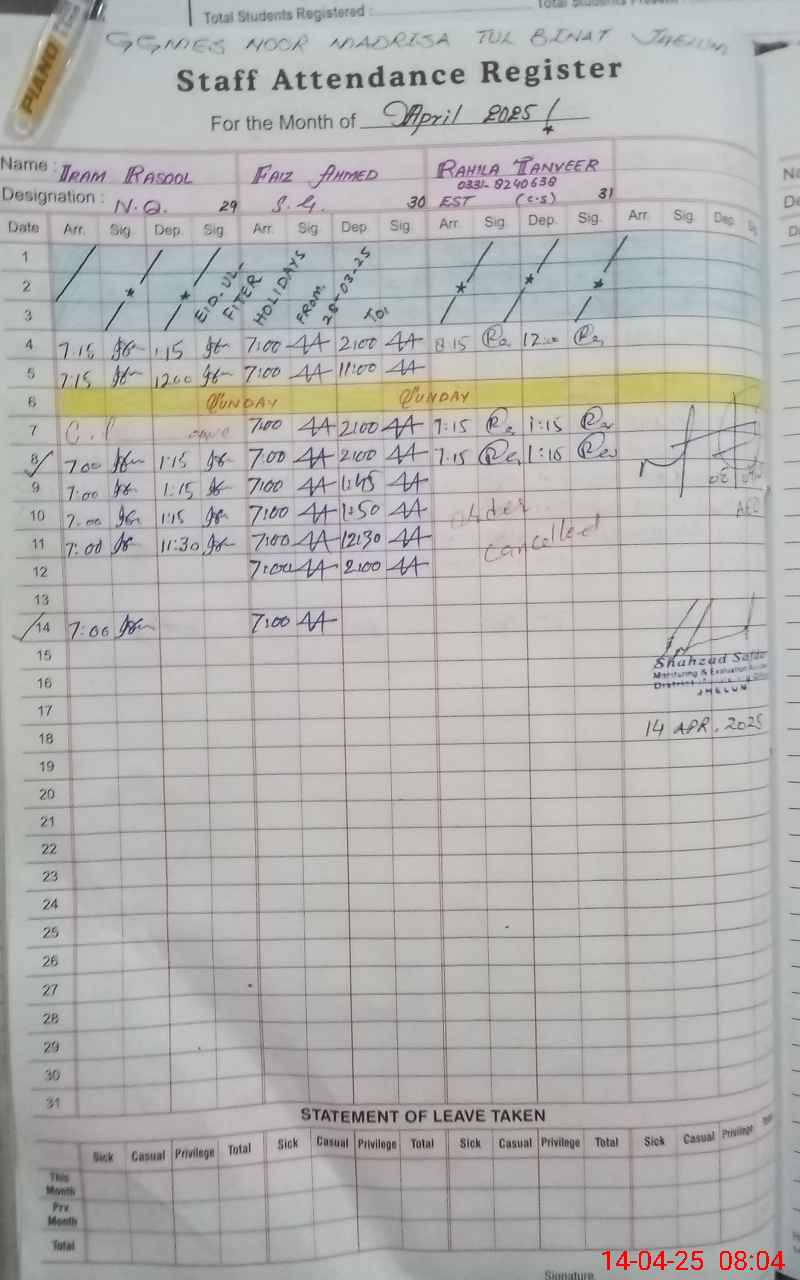 Total Students Registered :
PIANO
GGMES NOOR MADRISA TUL BINAT JHELUM
Staff Attendance Register
For the Month of April 2025!
Name : IRAM RASOOL FAIZ AHMED RAHILA TANVEER
0331-8240638
Designation : N.Q. 29 S.G. 30 EST (C.S) 31
Date Arr. Sig. Dep. Sig. Arr. Sig. Dep. Sig. Arr. Sig. Dep. Sig. Arr. Sig. Dep.
1
2 EID-UL-FITER HOLIDAYS FROM 28-03-25 TO.
3
4 7:15 1:15 7:00 2:00 8:15 12:00
5 7:15 12:00 7:00 11:00
6 SUNDAY SUNDAY
7 7:00 2:00 7:15 1:15
8 7:00 1:15 7:00 2:00 7:15 1:15
9 7:00 1:15 7:00 1:45
10 7:00 1:15 7:00 1:50 order
AEO
11 7:00 11:30 7:00 12:30 cancelled
12 7:00 2:00
13
14 7:00 7:00
15
Shahzad
16 Monitoring & Evaluation
District
JHELUM
17
18 14 APR. 2025
19
20
21
22
23
24
25
26
27
28
29
30
31
STATEMENT OF LEAVE TAKEN
Sick Casual Privilege Total Sick Casual Privilege Total Sick Casual Privilege Total Sick Casual Privilege Total
This Month
Prv Month
Total
Signature
14-04-25 08:04